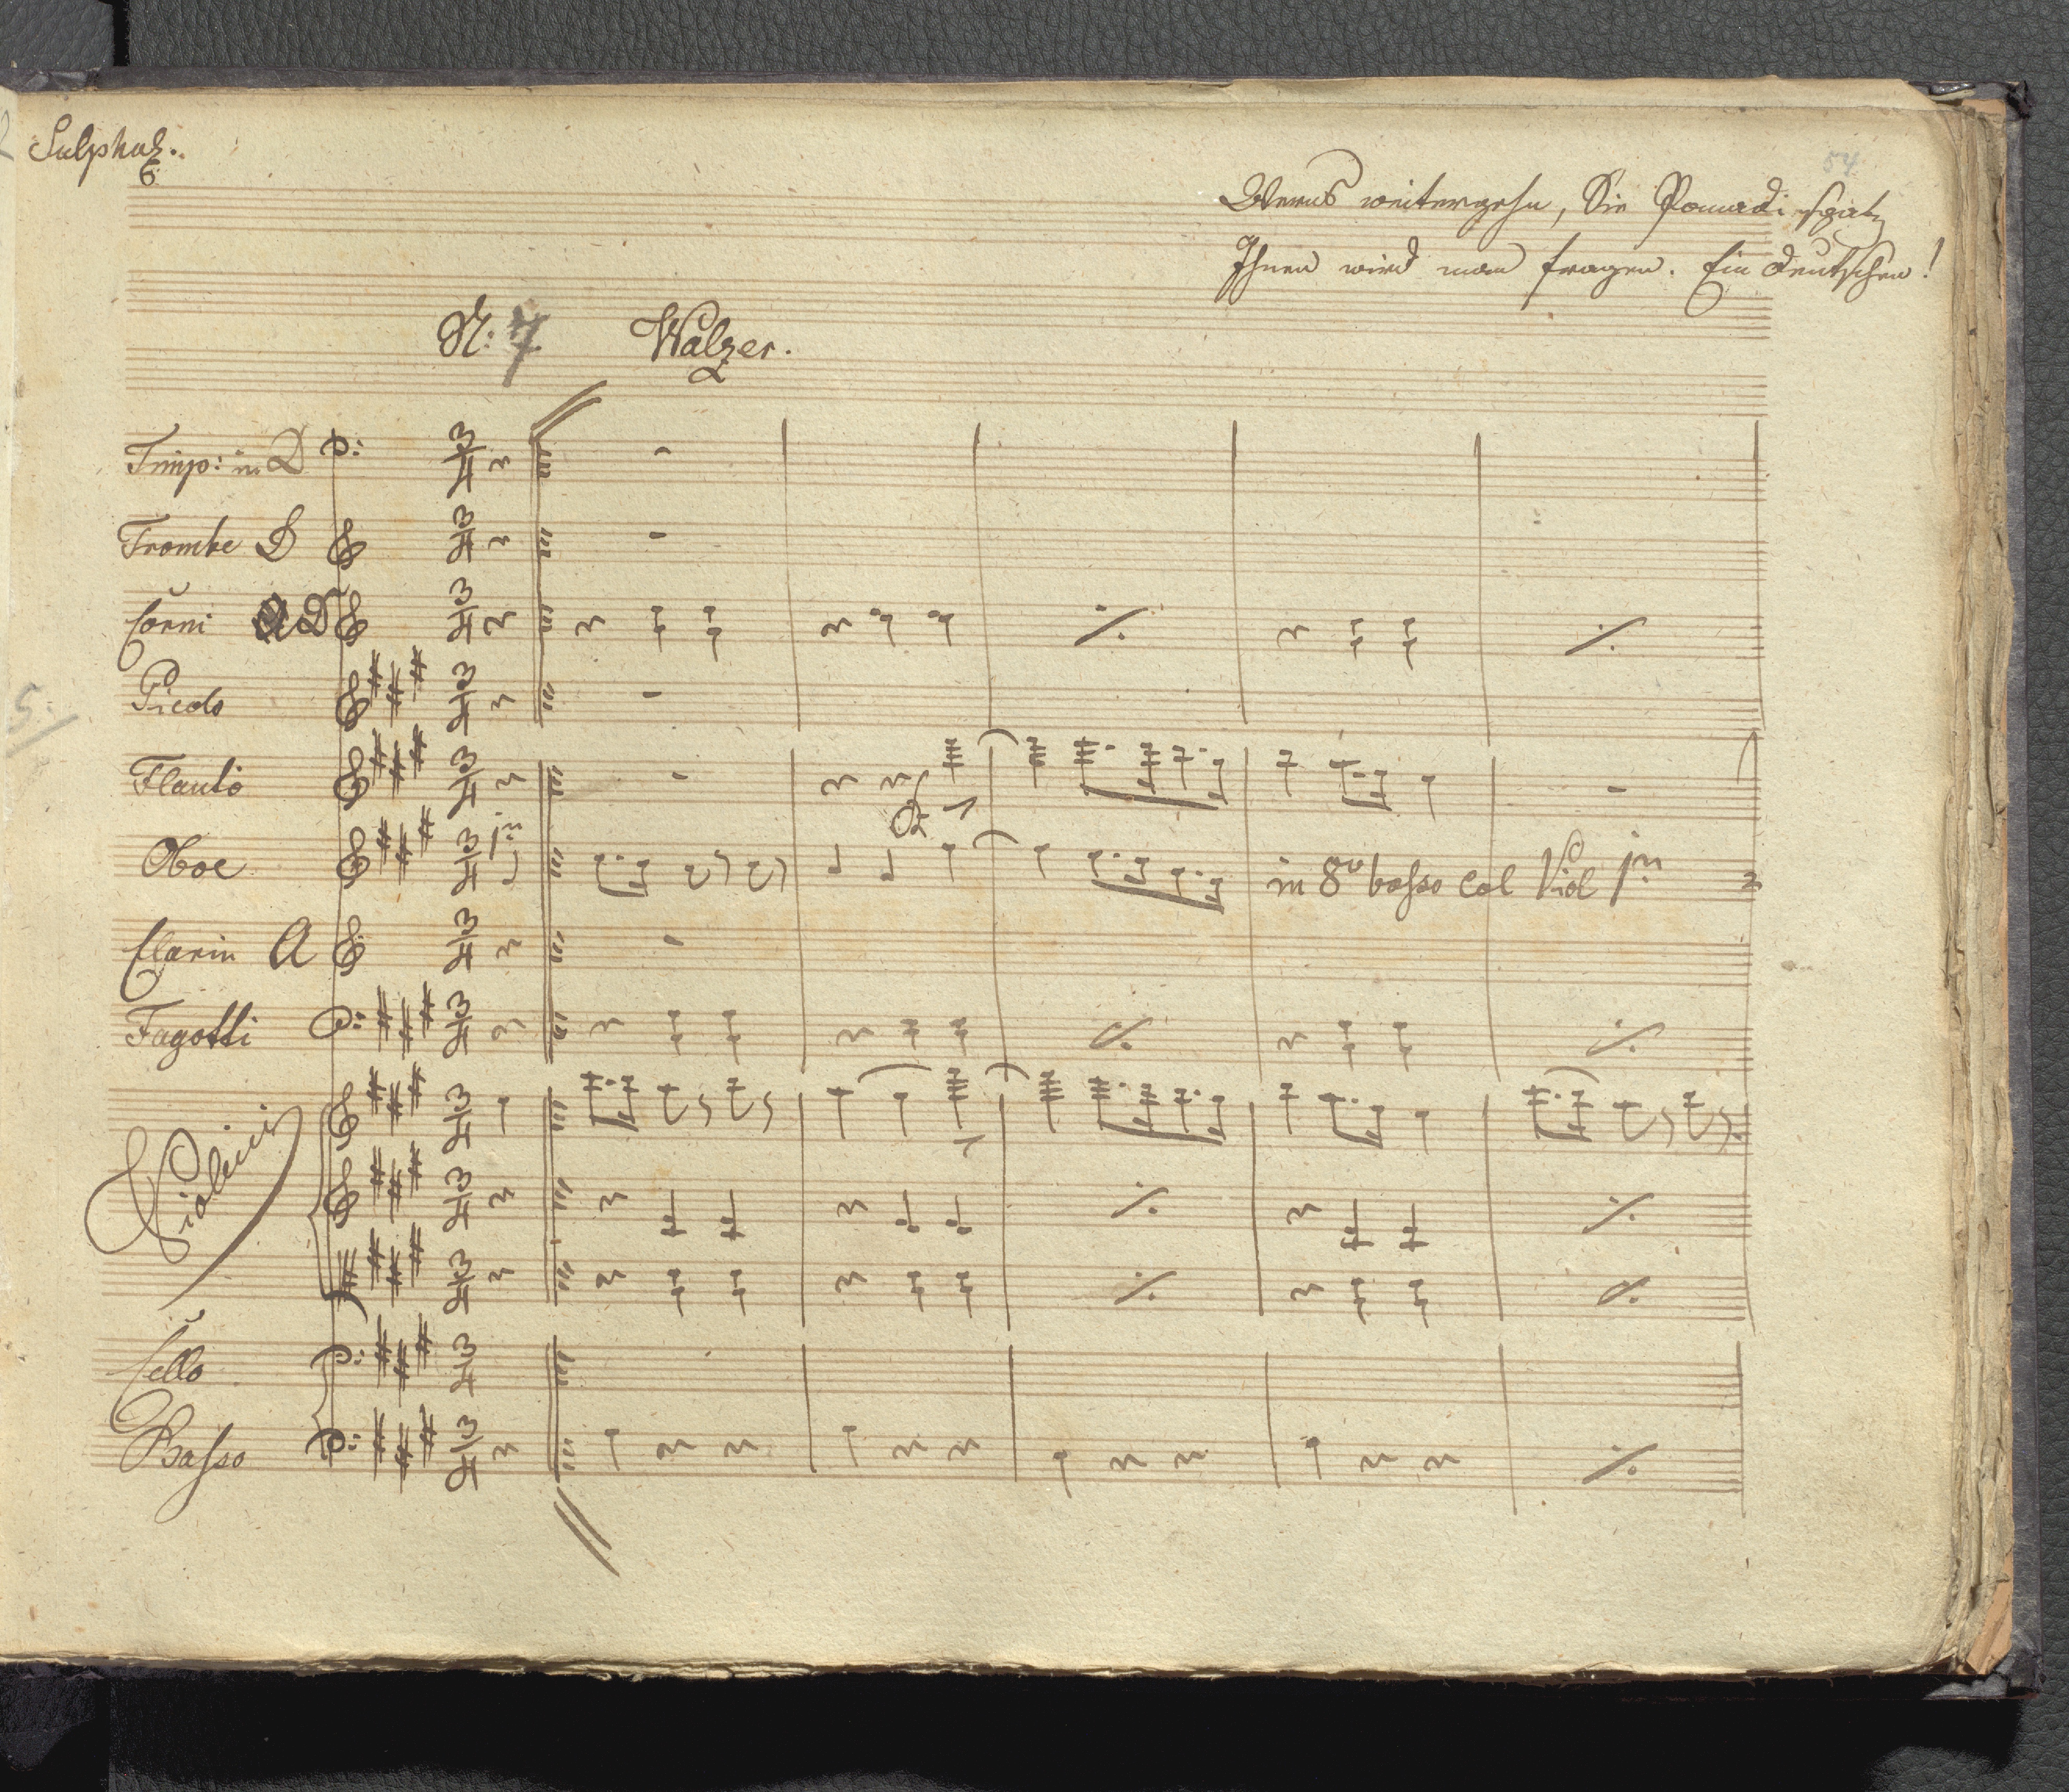 Sulphus.
6
54
Wenns weitergehn, Sie Pomadi
Ihnen wird man fragen. Ein deutschen!
N: 7 Walzer.
Timp: in D
Trombe D
Corni D
Picolo
5.
Flauto
Oboe 1mo in 8va basso col Viol 1mo
Clarin A
Fagotti
Violini
Cello
Basso